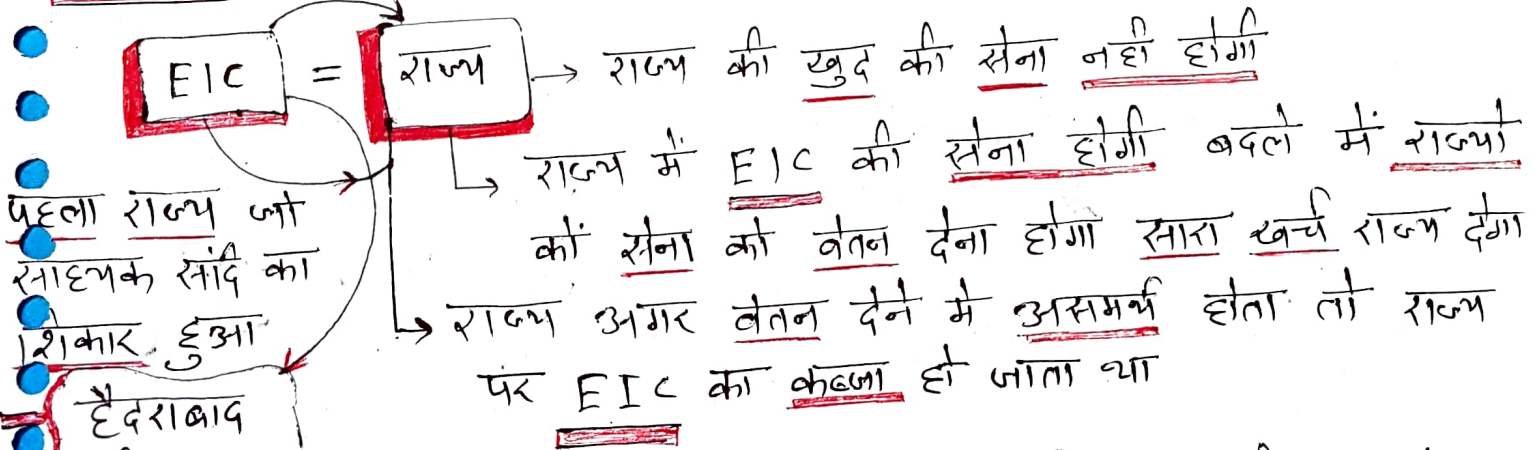 EIC = राज्य → राज्य की खुद की सेना नही होगी
राज्य में EIC की सेना होगी बदले में राज्यो
कों सेना को वेतन देना होगा सारा खर्च राज्य देगा
राज्य अगर वेतन देने मे असमर्थ होता तो राज्य
पर EIC का कब्जा हो जाता था
पहला राज्य जो
साहयक संादि का
शिकार हुआ
हैदराबाद